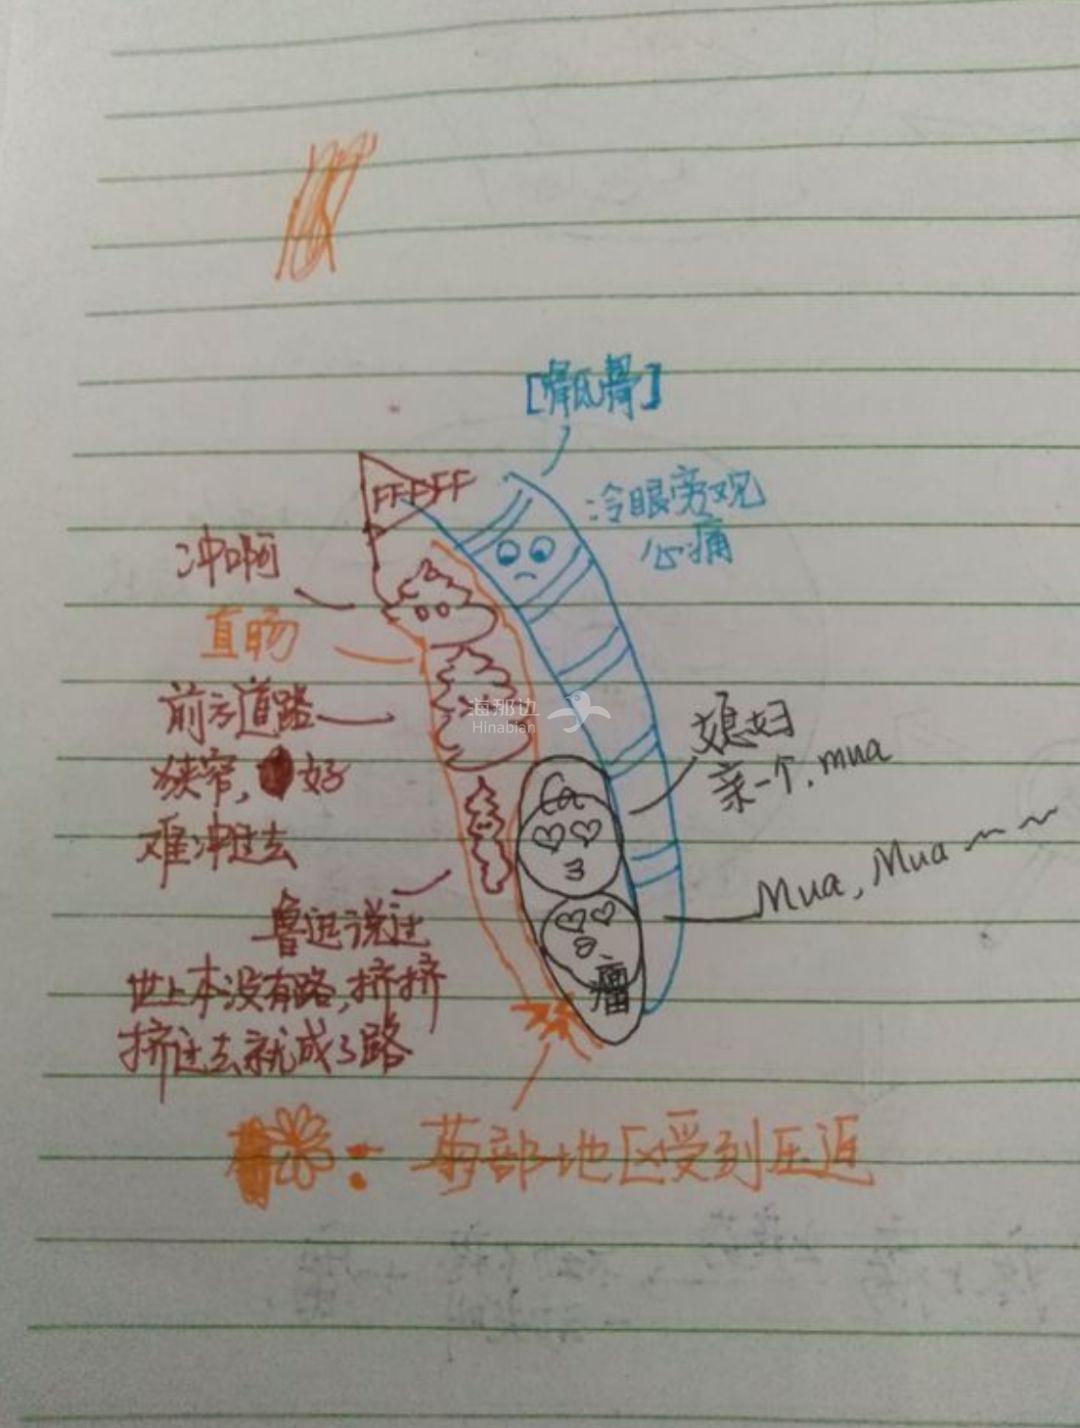 [骶骨]
FFFFF
冷眼旁观
心痛
冲啊
直肠
前方道路
狭窄,好
难冲过去
海那边
Hinabian
媳妇
亲一个.mua
Mua, Mua~~
鲁迅说过
世上本没有路,挤挤
挤过去就成了路
瘤
: 菊部地区受到压迫